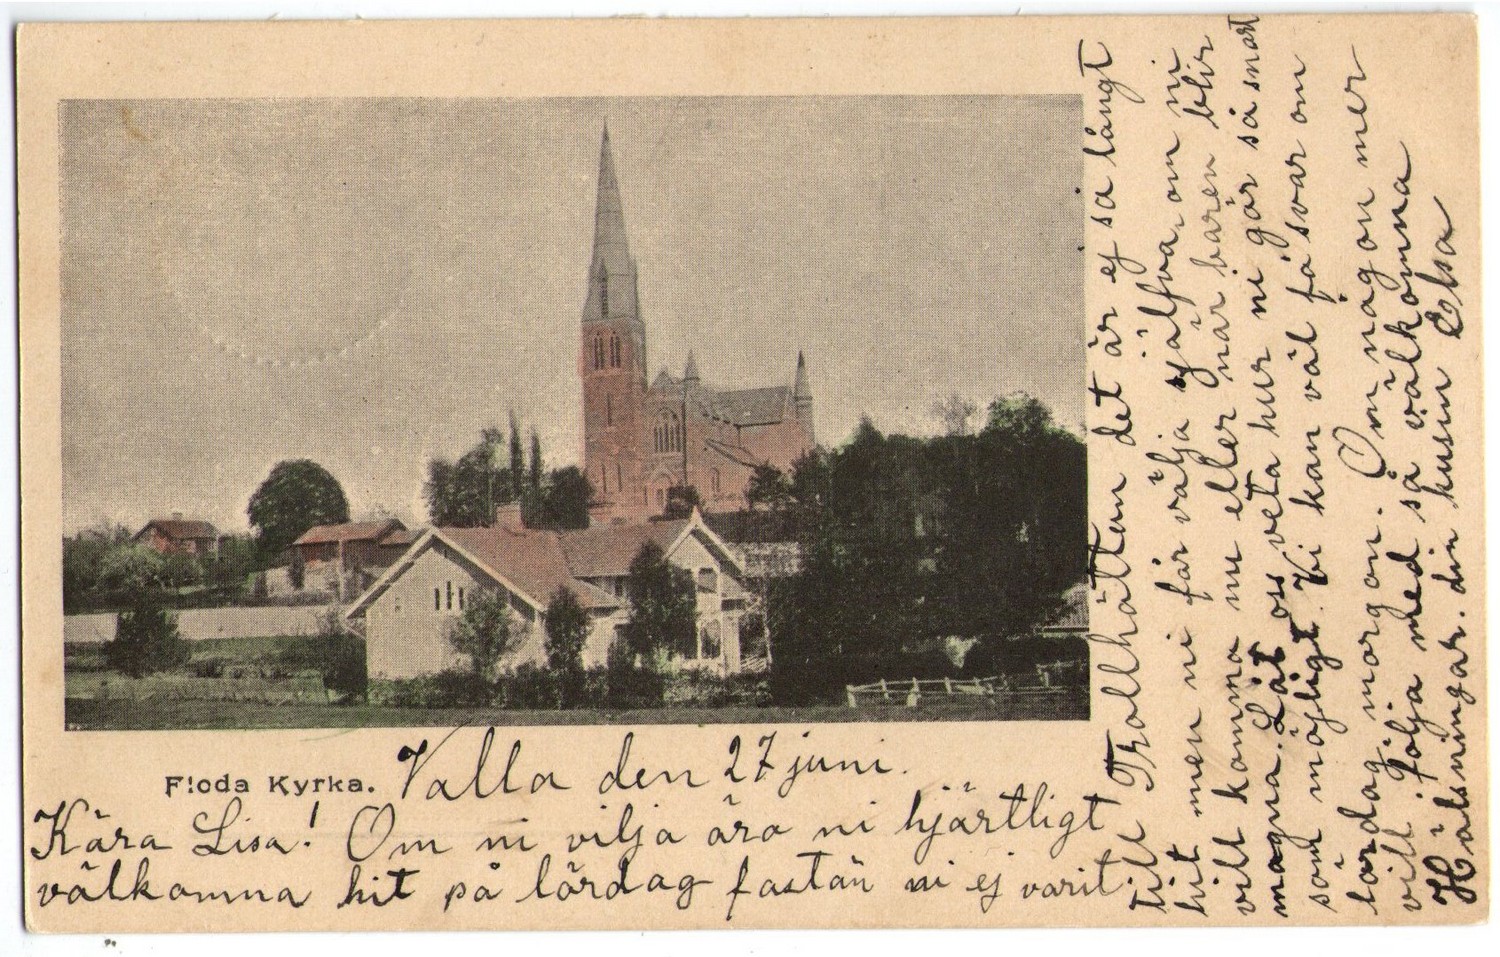 Floda Kyrka.
Valla den 27 juni.
Kära Lisa! Om ni vilja äro ni hjärtligt
välkomna hit på lördag fastän ni ej varit
till Trollhättan det är ej så långt
hit men ni får välja själfva, om ni
vill komma nu eller när bären blir
mogna. Låt oss veta hur ni gör så snart
som möjligt. Vi kan väl få svar om
lördag morgon. Om någon mer
vill följa med så välkomna
Hälsningar. din kusin Elsa